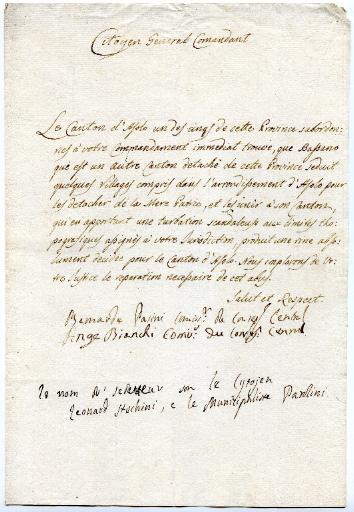 Citoyen General Comandant
Le Canton d'Asolo un des cinqs de cette Province subordon-
nes à votre Commandement immediat trouve, que Bassano
que est un autre Canton detaché de cette Province seduit
quelques villages compris dans l'arrondissement d'Asolo pour
les detacher de la Mere Patrie, et les unir à son Canton,
qui en apportant une turbation scandaleuse aux limites tho-
pografiques assignés à votre Jurisdiction, produit une
lument decidée pour le Canton d'Asolo. Nous implorons de Vo-
tre Justice le reparation necessaire de cet abus.
Salut et Respect
Bernardo Pasini
Bianchi
le nom le Cytojen
Leonard e le Municipaliste Parolini